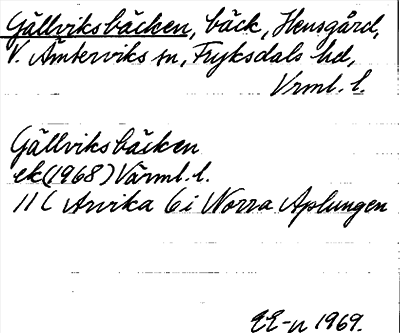 Gällviksbäcken, bäck, Hensgård,
V. Ämterviks sn, Fryksdals hd,
Vrml. l.
Gällviksbäcken
ek (1968) Värml. l.
11 C Arvika 6 i Norra Aplungen
EE-n 1969.